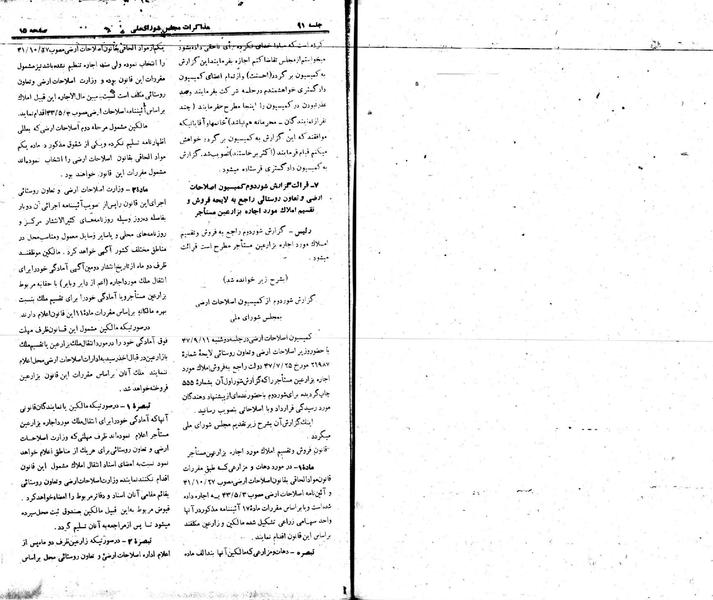 جلسه ۹۱
مذاکرات مجلس شورای ملی
صفحه ۱۵
کرده است که مبادا خدای نکرده برای ناحقی داده شود
میخواستم از مجلس تقاضا کنم اجازه بفرمایند این گزارش
به کمیسیون برگردد (احسنت) و از تمام اعضای کمیسیون
دادگستری خواهشمندم در جلسه شرکت بفرمایند و صد
عذر نبودن در کمیسیون را اینجا مطرح نفرمایند (چند
نفر از نمایندگان - محرمانه هم نباشد) خانمها و آقایانیکه
موافقند که این گزارش به کمیسیون برگردد خواهش
میکنم قیام فرمایند (اکثر برخاستند) تصویب شد. گزارش
به کمیسیون دادگستری فرستاده میشود.
۷- قرائت گزارش شور دوم کمیسیون اصلاحات
ارضی و تعاون روستائی راجع به لایحه فروش و
تقسیم املاک مورد اجاره بزارعین مستأجر
رئیس - گزارش شور دوم راجع به فروش و تقسیم
املاک مورد اجاره بزارعین مستأجر مطرح است قرائت
میشود.
(بشرح زیر خوانده شد)
گزارش شور دوم از کمیسیون اصلاحات ارضی
به مجلس شورای ملی
کمیسیون اصلاحات ارضی در جلسه دوشنبه ۴۷/۹/۱۱
با حضور وزیر اصلاحات ارضی و تعاون روستائی لایحه شماره
۲۱۹۸۷ مورخ ۴۷/۷/۲۵ دولت راجع به فروش املاک مورد
اجاره بزارعین مستأجر را که گزارش شور اول آن بشماره ۵۵۵
چاپ گردیده برای شور دوم با حضور عده‌ای از پیشنهاد دهندگان
مورد رسیدگی قرار داد و با اصلاحاتی بتصویب رسانید.
اینک گزارش آن بشرح زیر تقدیم مجلس شورای ملی
میگردد
قانون فروش و تقسیم املاک مورد اجاره بزارعین مستأجر
مادۀ ۱- در مورد دهات و مزارعی که طبق مقررات
قانون مواد الحاقی بقانون اصلاحات ارضی مصوب ۴۱/۱۰/۲۷
و آئین نامه اصلاحات ارضی مصوب ۴۳/۵/۳ به اجاره داده
شده است و یا براساس مقررات مادۀ ۱۷ آئیننامه مذکور در آنها
واحد سهامی زراعی تشکیل شده مالکین و زارعین مکلفند
بر اساس این قانون اقدام نمایند.
تبصره - دهات و مزارعی که مالکین آنها بند الف ماده
یکم از مواد الحاقی بقانون اصلاحات ارضی مصوب ۴۱/۱۰/۲۷
را انتخاب نموده ولی سند اجاره تنظیم نشده باشد نیز مشمول
مقررات این قانون بوده و وزارت اصلاحات ارضی و تعاون
روستائی مکلف است نسبت به تعیین مال‌الاجاره این قبیل املاک
بر اساس آئیننامه اصلاحات ارضی مصوب ۴۳/۵/۳ اقدام نماید.
مالکین مشمول مرحله دوم اصلاحات ارضی که بعللی
اظهارنامه تسلیم نکرده و یکی از شقوق مذکور در ماده یکم
مواد الحاقی بقانون اصلاحات ارضی را انتخاب نموده‌اند
مشمول مقررات این قانون خواهند بود.
مادۀ ۲- وزارت اصلاحات ارضی و تعاون روستائی
اجرای این قانون را پس از تصویب آئیننامه اجرائی آن دوبار
بفاصله ده روز وسیله روزنامه‌های کثیرالانتشار مرکز و
روزنامه‌های محلی و یا سایر وسایل معمول و مناسب محل در
مناطق مختلف کشور آگهی خواهد کرد. مالکین موظفند
ظرف دو ماه از تاریخ انتشار دومین آگهی آمادگی خود را برای
انتقال ملک مورد اجاره (اعم از دایر و بایر) با حقابه مربوط
بزارعین مستأجر و یا آمادگی خود را برای تقسیم ملک بنسبت
بهره مالکانه بر اساس مقررات مادۀ ۱۱ این قانون اعلام دارند.
در صورتیکه مالکین مشمول این قانون ظرف مهلت
فوق آمادگی خود را در مورد انتقال ملک بزارعین یا تقسیم ملک
با زارعین در قبال اخذ رسید به ادارات اصلاحات ارضی محل اعلام
ننمایند ملک آنان بر اساس مقررات این قانون بزارعین
فروخته خواهد شد.
تبصرۀ ۱- در صورتیکه مالکین یا نمایندگان قانونی
آنها که آمادگی خود را برای انتقال ملک مورد اجاره بزارعین
مستأجر اعلام نموده‌اند ظرف مهلتی که وزارت اصلاحات
ارضی و تعاون روستائی برای هر یک از مناطق اعلام خواهد
نمود نسبت به امضای اسناد انتقال املاک مشمول این قانون
اقدام نکنند نماینده وزارت اصلاحات ارضی و تعاون روستائی
بقائم مقامی آنان اسناد و دفاتر مربوط را امضاء خواهد کرد.
قبوض مربوط به این قبیل مالکین بصندوق ثبت محل سپرده
میشود تا پس از مراجعه به آنان تسلیم گردد.
تبصرۀ ۲- در صورتیکه زارعین ظرف دو ماه پس از
اعلام اداره اصلاحات ارضی و تعاون روستائی محل بر اساس